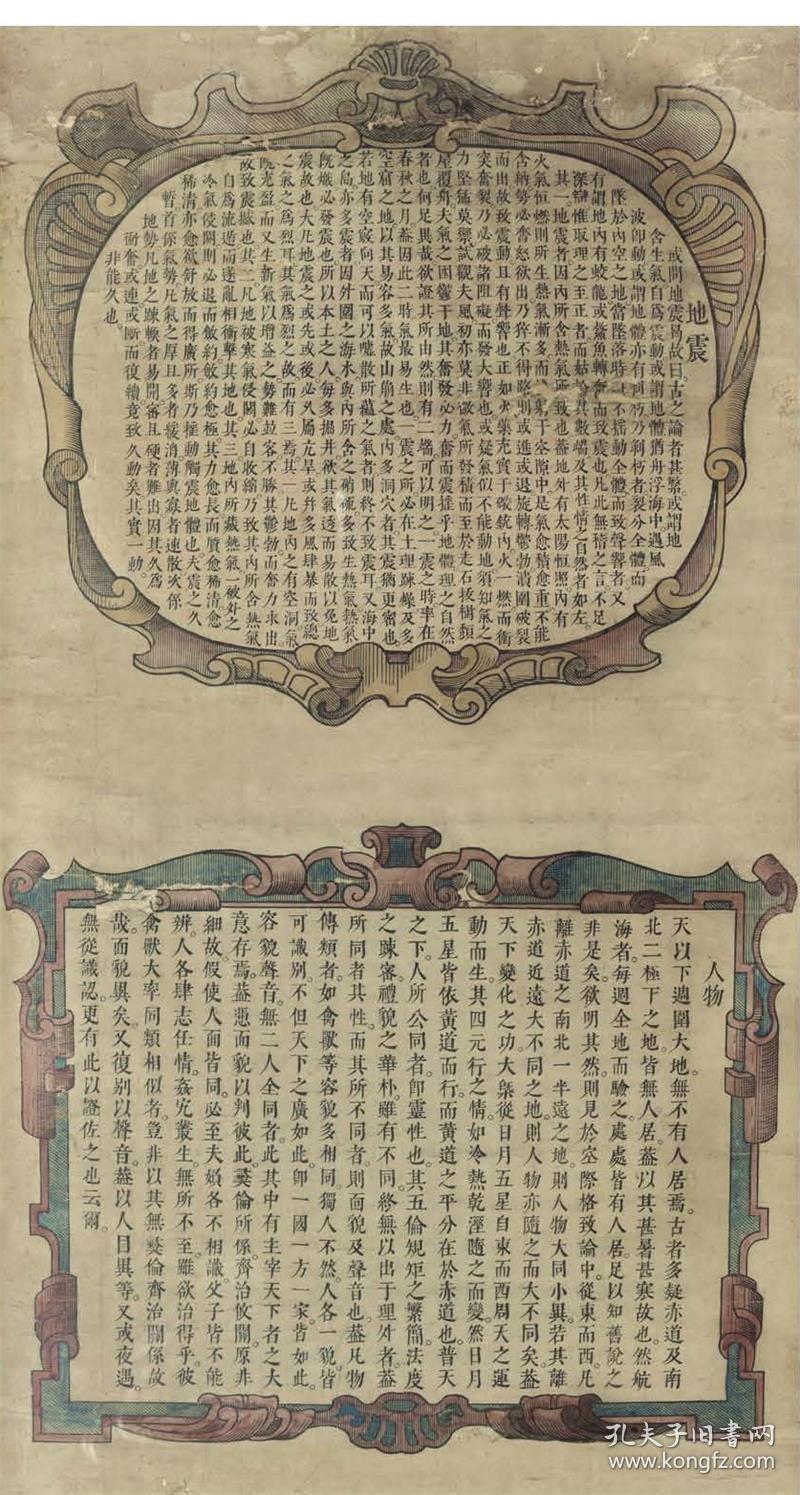 地震
或問地震曷故曰古之論者甚繁或謂地
含生氣自爲震動或謂地體猶舟浮海中遇風
波卽動或謂地體亦有剥所乃剥朽者裂分全體而
墜於內空之地當墜落時不搖動全體而致聲響者又
有謂地內有蛟龍或鰲魚轉奮而致震也凡此無稽之言不足
深辯惟取理之至正者而姑論其數端及其性情之自然者如左
其一地震者因內所含熱氣所致也葢地外有太陽恒照內有
火氣恒燃則所生熱氣漸多而射于空隙中是氣愈積愈重不能
含納勢必奮怒欲出乃猝不得路則或進或退旋轉鬱勃潰圍破裂
而出故致震動且有聲響也正如火藥充實于礮銃內火一燃而衝
突奮裂乃必破諸阻礙而發大響也或疑氣似不能動地須知氣之
力堅猛莫禦試觀夫風初亦莫非微氣所發積而至於走石拔樹頹
屋覆舟夫氣之困鬱于地其奮發必力奮而震搖乎地體理之自然
者也何足異哉欲證其所由然則有二端可以明之一震之時率在
春秋之月葢因此二時氣最易生也一震之所必在土理踈燥及多
空窟之地以其易容多氣故山崩之處內多洞穴者其震猶更密也
若地有空竅向天而可以噓散所蘊之氣者則終不致震耳又海中
之島亦多震者因外圍之海水與內所含之硝硫多致生熱氣熱氣
旣熾必發震也所以本土之人每多掘井欲其氣透而易散以免地
震故也大凡地震之或先或後必久屬亢旱或幷多風肆暴而致總
之氣之爲烈耳其氣爲烈之故而有三焉其一凡地內之有空洞氣
旣充盈而又生新氣以增益之勢難鼓容不勝其鬱勃而奮力求出
故致震撼也其二凡地被寒氣侵閼必自收縮乃致其內所含熱氣
自爲流遁而遂亂相衝擊其地也其三地內所藏熱氣一被外之
冷氣侵閼則必退而斂約斂約愈極其力愈長而質愈稀清愈
稀清亦愈欲舒放而得廣所斯乃搖動觸震地體也夫震之久
暫首係氣勢凡氣之厚且多者緩消薄與寡者速散次係
地勢凡地之踈輭者易開密且硬者難出因其久爲
衝奮或連或斷而復續竟致久動矣其實一動
非能久也
人物
天以下週圍大地。無不有人居焉。古者多疑赤道及南
北二極下之地。皆無人居。葢以其甚暑甚寒故也。然航
海者。每週全地而驗之。處處皆有人居。足以知舊說之
非是矣。欲明其然。則見於空際格致論中。從東而西。凡
離赤道之南北一半遠之地。則人物大同小異。若其離
赤道近遠大不同之地。則人物亦隨之而大不同矣。葢
天下變化之功。大槩從日月五星自東而西周天之運
動而生。其四元行之情。如冷熱乾溼隨之而變。然日月
五星皆依黃道而行。而黃道之平分在於赤道也。普天
之下。人所公同者。卽靈性也。其五倫規矩之繁簡。法度
之踈密。禮貌之華朴。雖有不同。終無以出于理外者。葢
所同者其性。而其所不同者。則面貌及聲音也。葢凡物
傳類者。如禽獸等容貌多相同。獨人不然。人各一貌。皆
可識別。不但天下之廣如此。卽一國一方一家。皆如此。
容貌聲音。無二人全同者。此其中有主宰天下者之大
意存焉。葢慿面貌以判彼此。彝倫所係。齊治攸關。原非
細故。假使人面皆同。必至夫婦各不相識。父子皆不能
辨。人各肆志任情。姦宄叢生。無所不至。雖欲治得乎。彼
禽獸大率同類相似者。豈非以其無彝倫齊治關係故
哉。而貌異矣。又復別以聲音。葢以人目異等。又或夜遇。
無從識認。更有此以證佐之也云爾。
孔夫子旧书网
www.kongfz.com